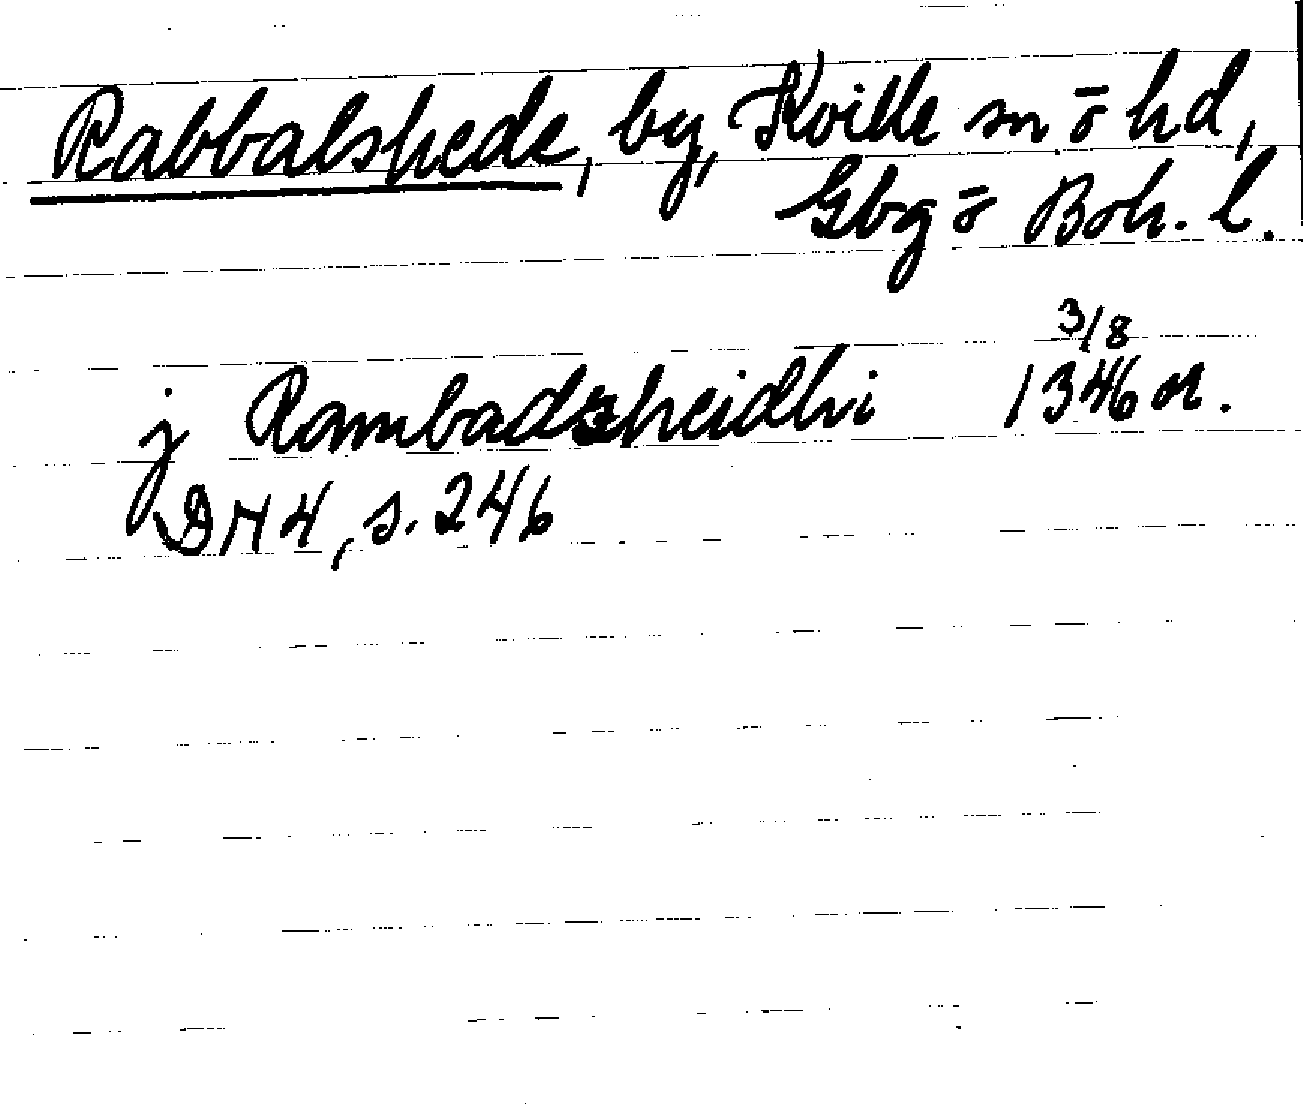 Rabbalshede, by, Kville sn ō hd,
Gbg ō Boh. l.
3/8
j Rambadzheidhi 1346 or.
DN 4, s. 246